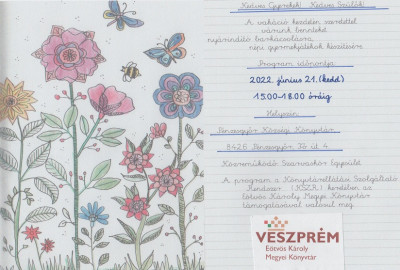 Kedves Gyerekek! Kedves Szülők!
A vakáció kezdetén szeretettel
várunk benneteket
nyárindító barkácsolásra,
népi gyermekjátékok készítésére.
Program időpontja:
2022. június 21. (kedd)
15.00-18.00 óráig
Helyszín:
Pénzesgyőr Községi Könyvtár
8426 Pénzesgyőr, Fő út 4.
Közreműködő: Szarvaskő Egyesület
A program a Könyvtárellátási Szolgáltató
Rendszer (KSZR) keretében az
Eötvös Károly Megyei Könyvtár
támogatásával valósul meg.
VESZPRÉM
Eötvös Károly
Megyei Könyvtár